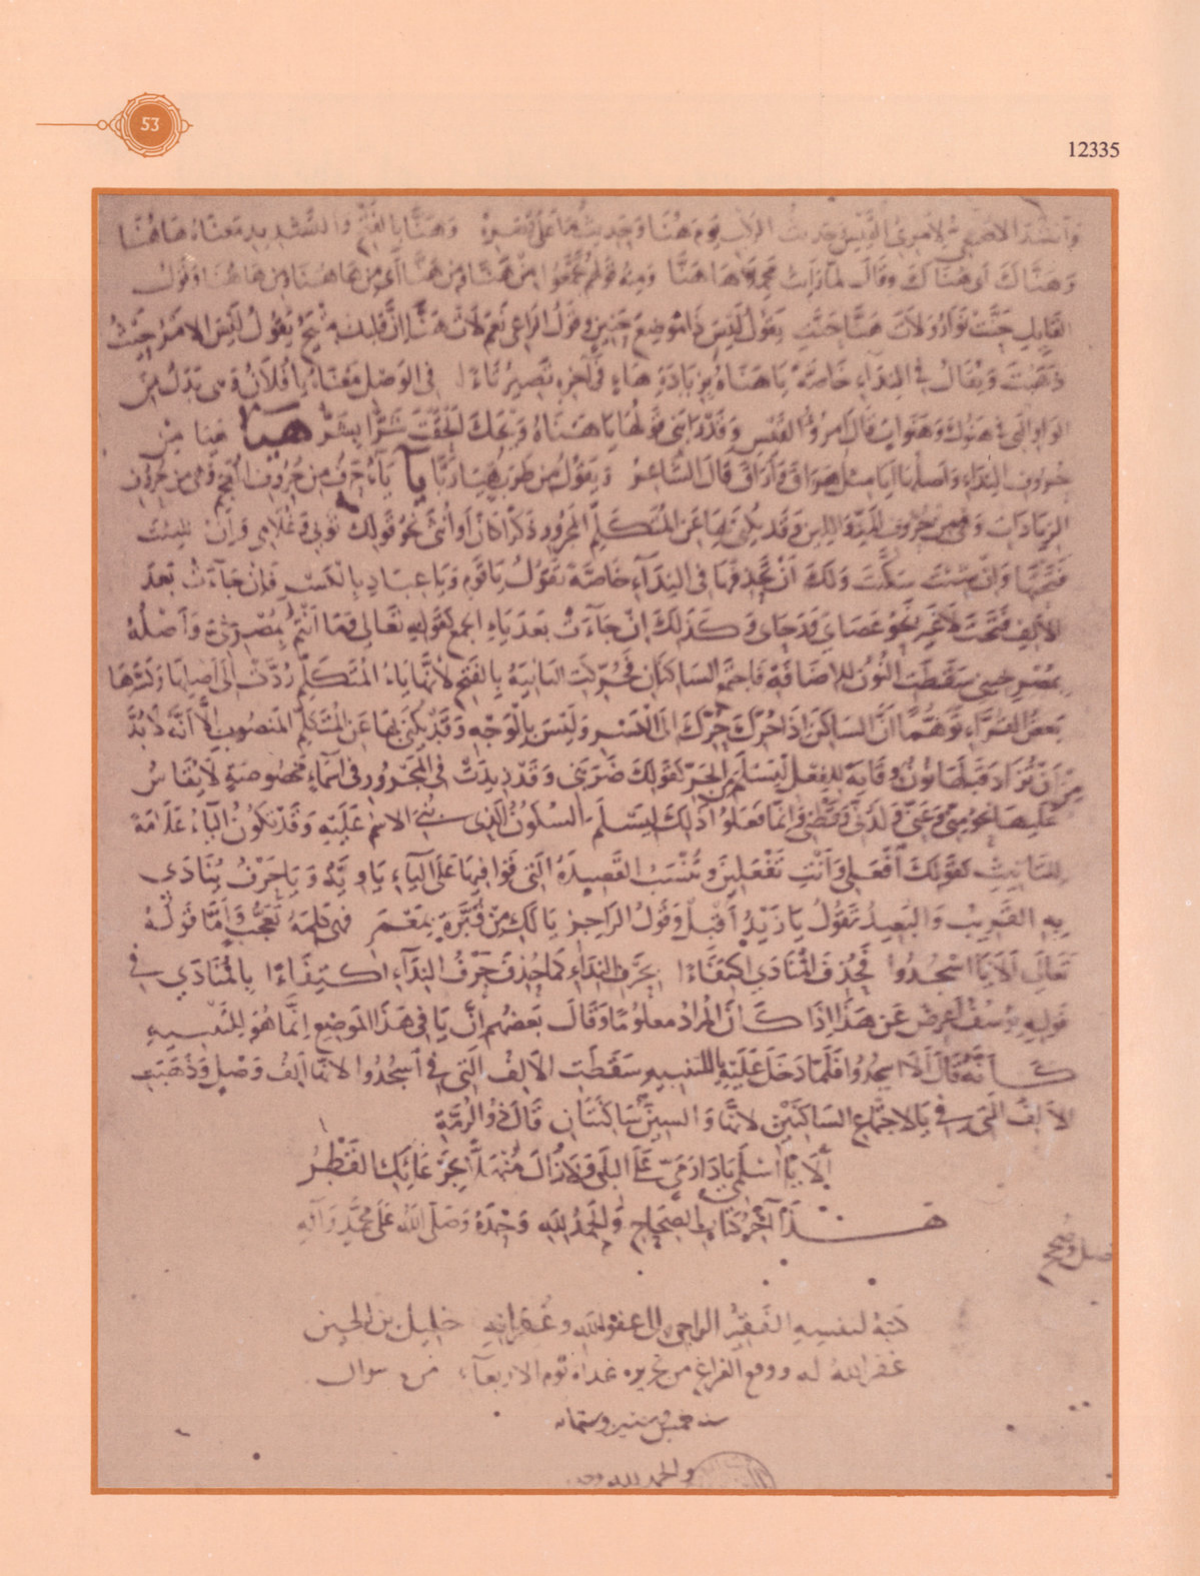 53
12335
وأنشد الأصمعي لامرئ القيس وحديث الركب يوم هنا وحديث ما على قصره وهنا بالفتح والتشديد معناه هاهنا
وهناك أي هناك وقال لما رأيت محمليها هنا ومنه قولهم تجمعوا من هنا ومن هنا أي من هاهنا ومن هاهنا وقول
القائل حنت نوار ولات هنا حنت يقول ليس ذا موضع حنين وقول الراعي نعم لات هنا إن قلبك متيح يقول ليس الأمر حيث
ذهبت ويقال في النداء خاصة يا هناه بزيادة هاء في آخره تصير تاء في الوصل معناه يا فلان وهي بدل من
الواو التي في هنوك وهنوات قال امرؤ القيس وقد رابني قولها يا هناه ويحك ألحقت شرا بشر هيا هيا من
حروف النداء وأصلها أيا مثل هراق وأراق قال الشاعر ويقول من طرب هيا ربا يا ياء حرف من حروف المعجم وهي من حروف
الزيادات ومن حروف المد واللين وقد يكنى بها عن المتكلم المجرور ذكرا كان أو أنثى نحو قولك ثوبي وغلامي وإن شئت
فتحتها وإن شئت سكنت ولك أن تحذفها في النداء خاصة تقول يا قوم ويا عباد بالكسر فإن جاءت بعد
الألف فتحت لا غير نحو عصاي ورحاي وكذلك إن جاءت بعد ياء الجمع كقوله تعالى وما أنتم بمصرخي وأصله
بمصرخيني سقطت النون للإضافة فاجتمع الساكنان فحركت الثانية بالفتح لأنها ياء المتكلم ردت إلى أصلها وكسرها
بعض القراء توهما أن الساكن إذا حرك حرك إلى الكسر وليس بالوجه وقد يكنى بها عن المتكلم المنصوب إلا أنه لا بد
من أن تزاد قبلها نون وقاية للفعل ليسلم من الجر كقولك ضربني وقد زيدت في المجرور في أسماء مخصوصة لا يقاس
عليها نحو مني وعني ولدني وقطني وإنما فعلوا ذلك ليسلم السكون الذي بني الاسم عليه وقد تكون الياء علامة
للتأنيث كقولك افعلي وأنت تفعلين وتنسب القصيدة التي قوافيها على الياء ياوية ويا حرف ينادى
به القريب والبعيد تقول يا زيد أقبل وقول الراجز يا لك من قبرة بمعمر فهي كلمة تعجب وأما قوله
تعالى ألا يا اسجدوا فحذف المنادى اكتفاء بحرف النداء كما حذف حرف النداء اكتفاء بالمنادى في
قوله يوسف أعرض عن هذا إذا كان المراد معلوما وقال بعضهم إن يا في هذا الموضع إنما هو للتنبيه
كأنه قال ألا اسجدوا فلما دخل عليه يا للتنبيه سقطت الألف التي في اسجدوا لأنها ألف وصل وذهبت
الألف التي في يا لاجتماع الساكنين لأنها والسين ساكنتان قال ذو الرمة
ألا يا اسلمي يا دار مي على البلى ولا زال منهلا بجرعائك القطر
هذا آخر كتاب الصحاح والحمد لله وحده وصلى الله على محمد وآله
وصحح
كتبه لنفسه الفقير الراجي إلى عفو الله وغفرانه خليل بن الحسين
غفر الله له ووقع الفراغ من تحريره غداة يوم الأربعاء من شوال
سنة وستمائة
والحمد لله